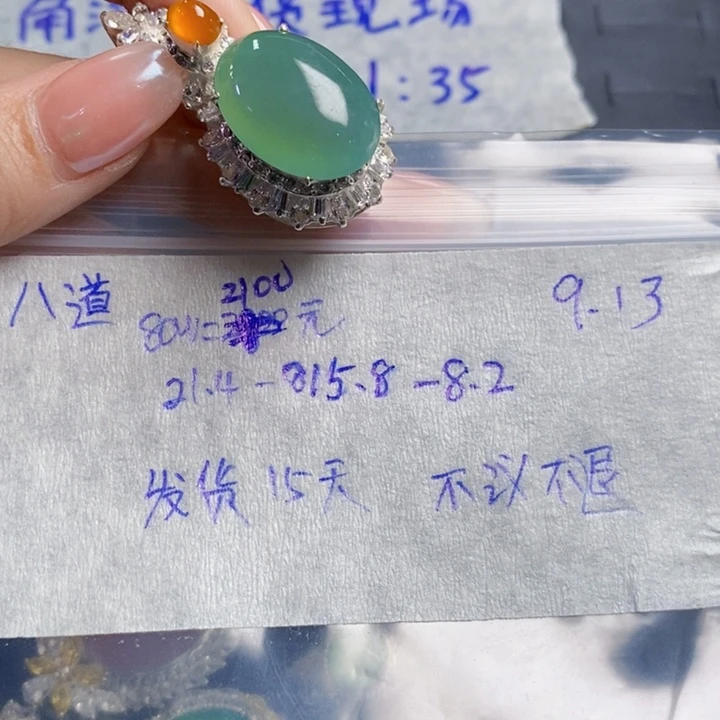 现场
1:35
八道
2100
元
9.13
21.4-815.8-8.2
发货15天 不议不退